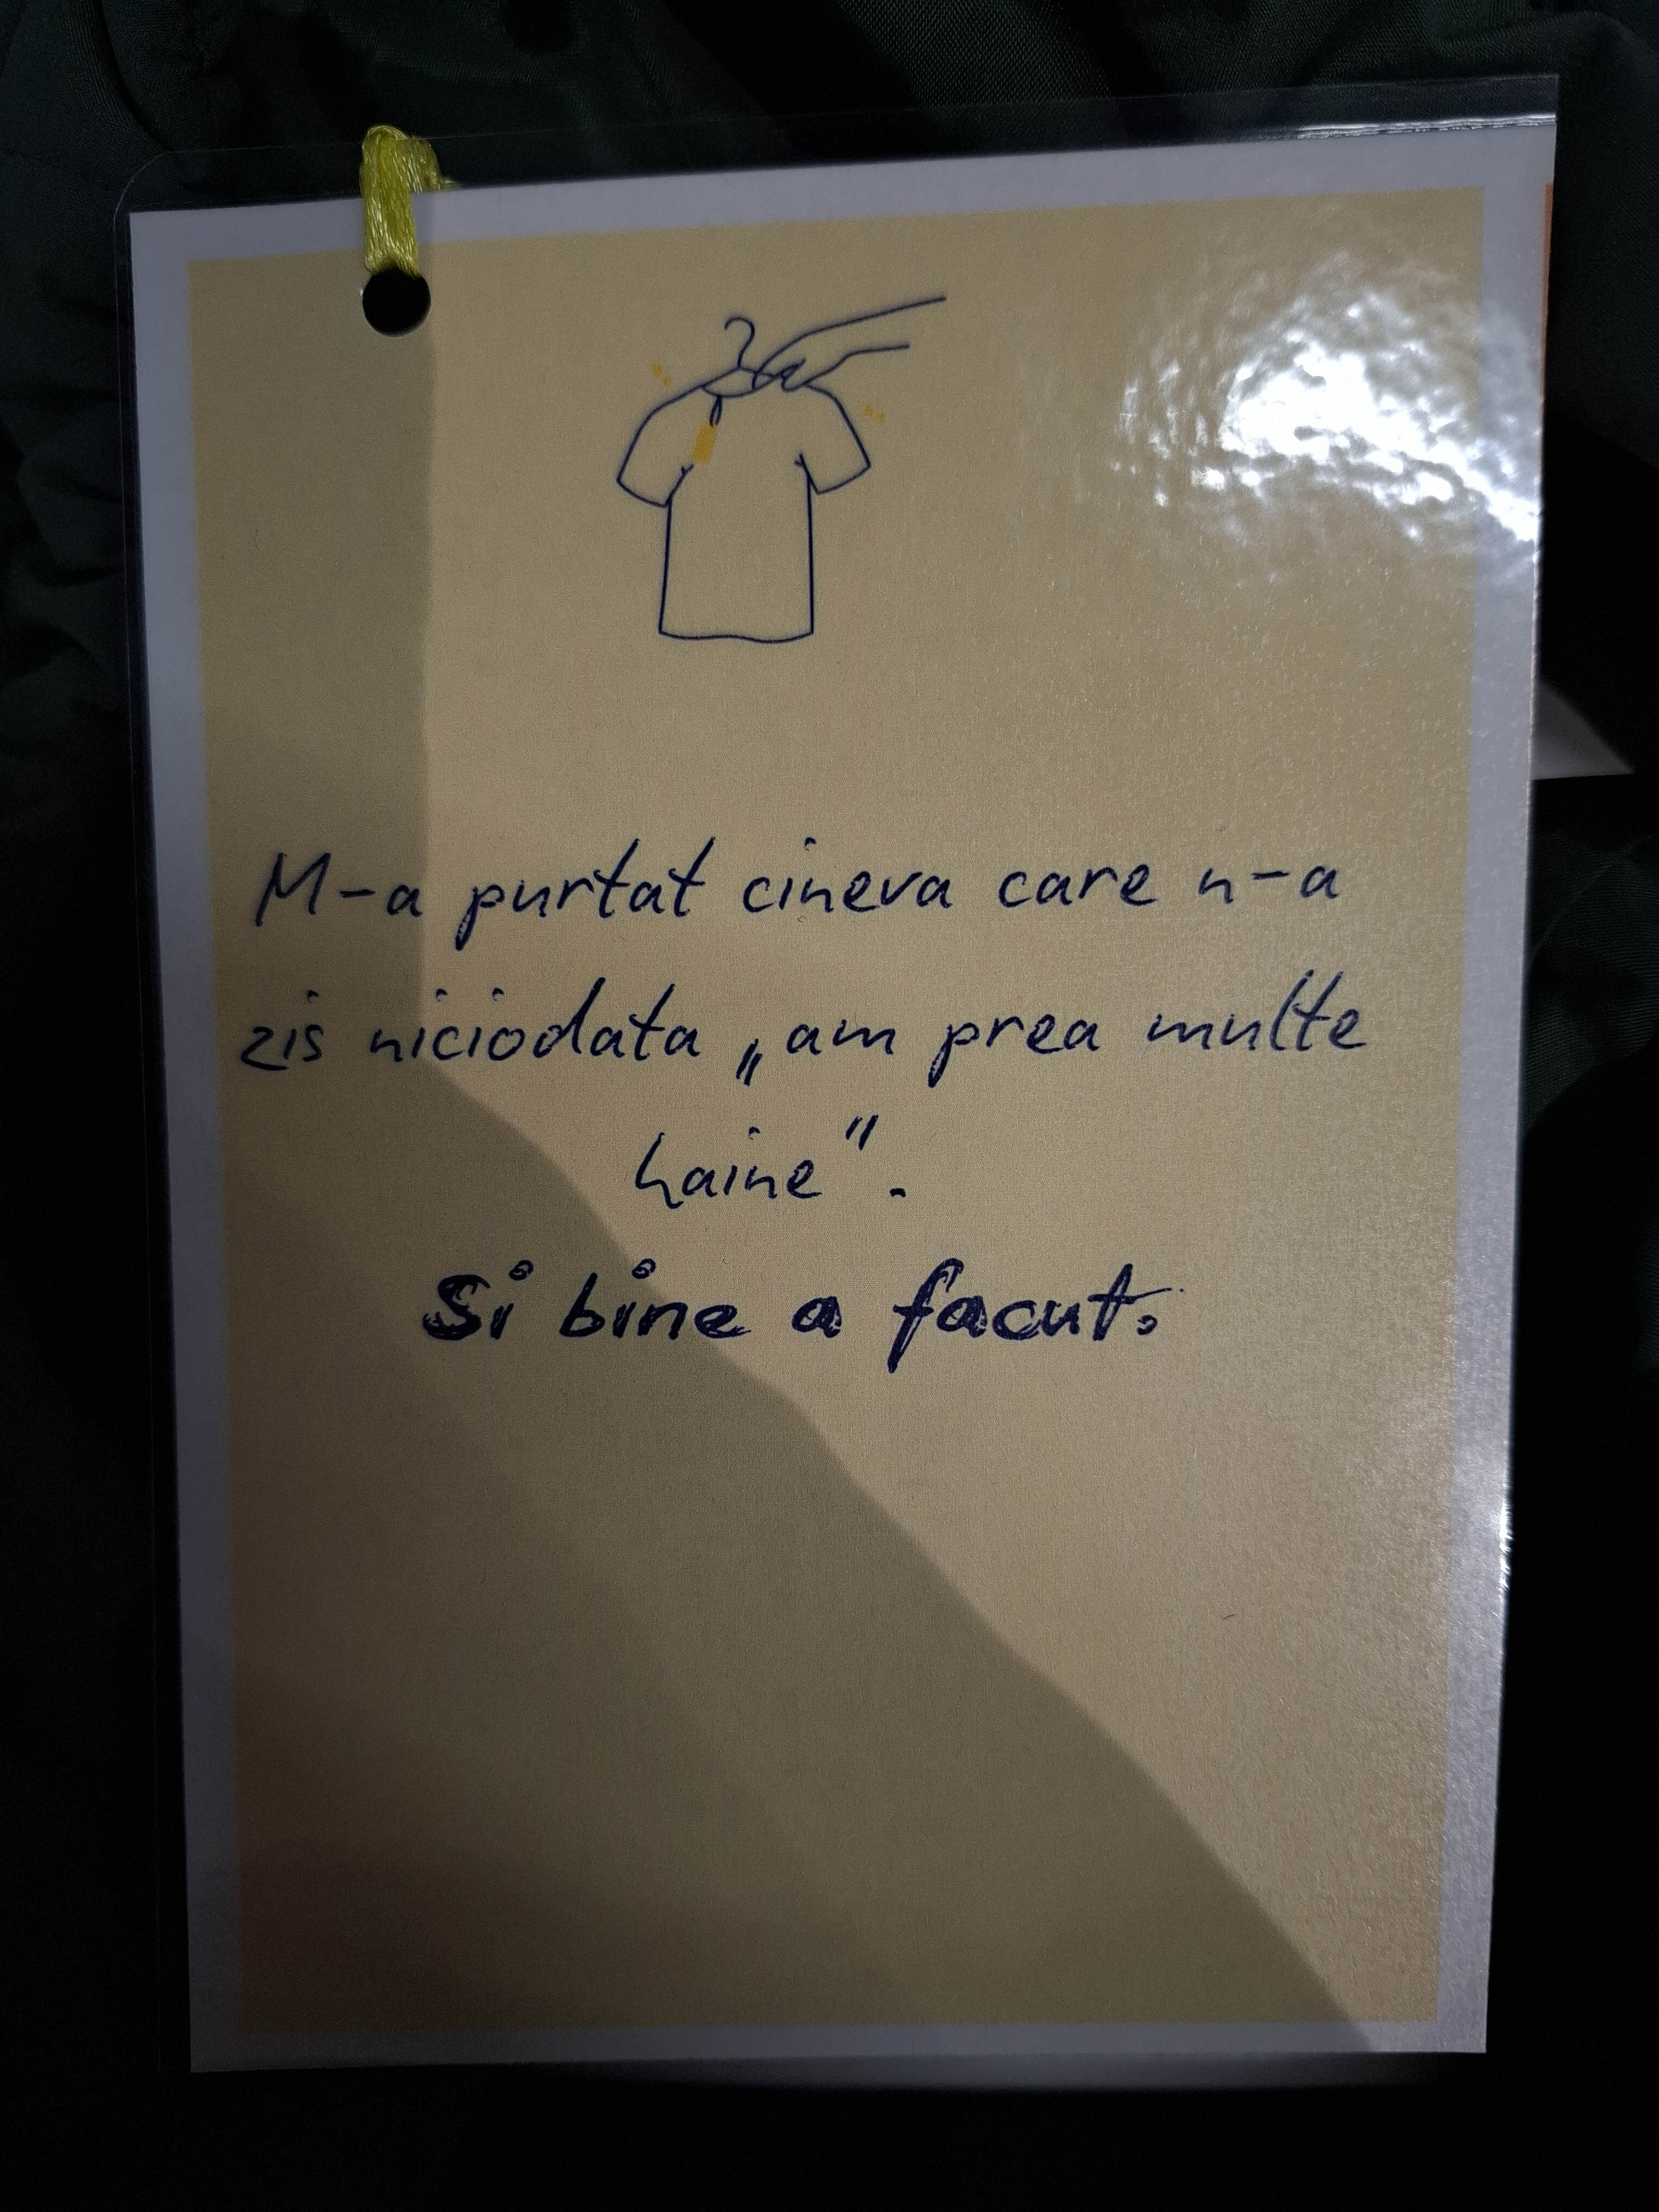 M-a purtat cineva care n-a
zis niciodata „am prea multe
haine”.
Si bine a facut.